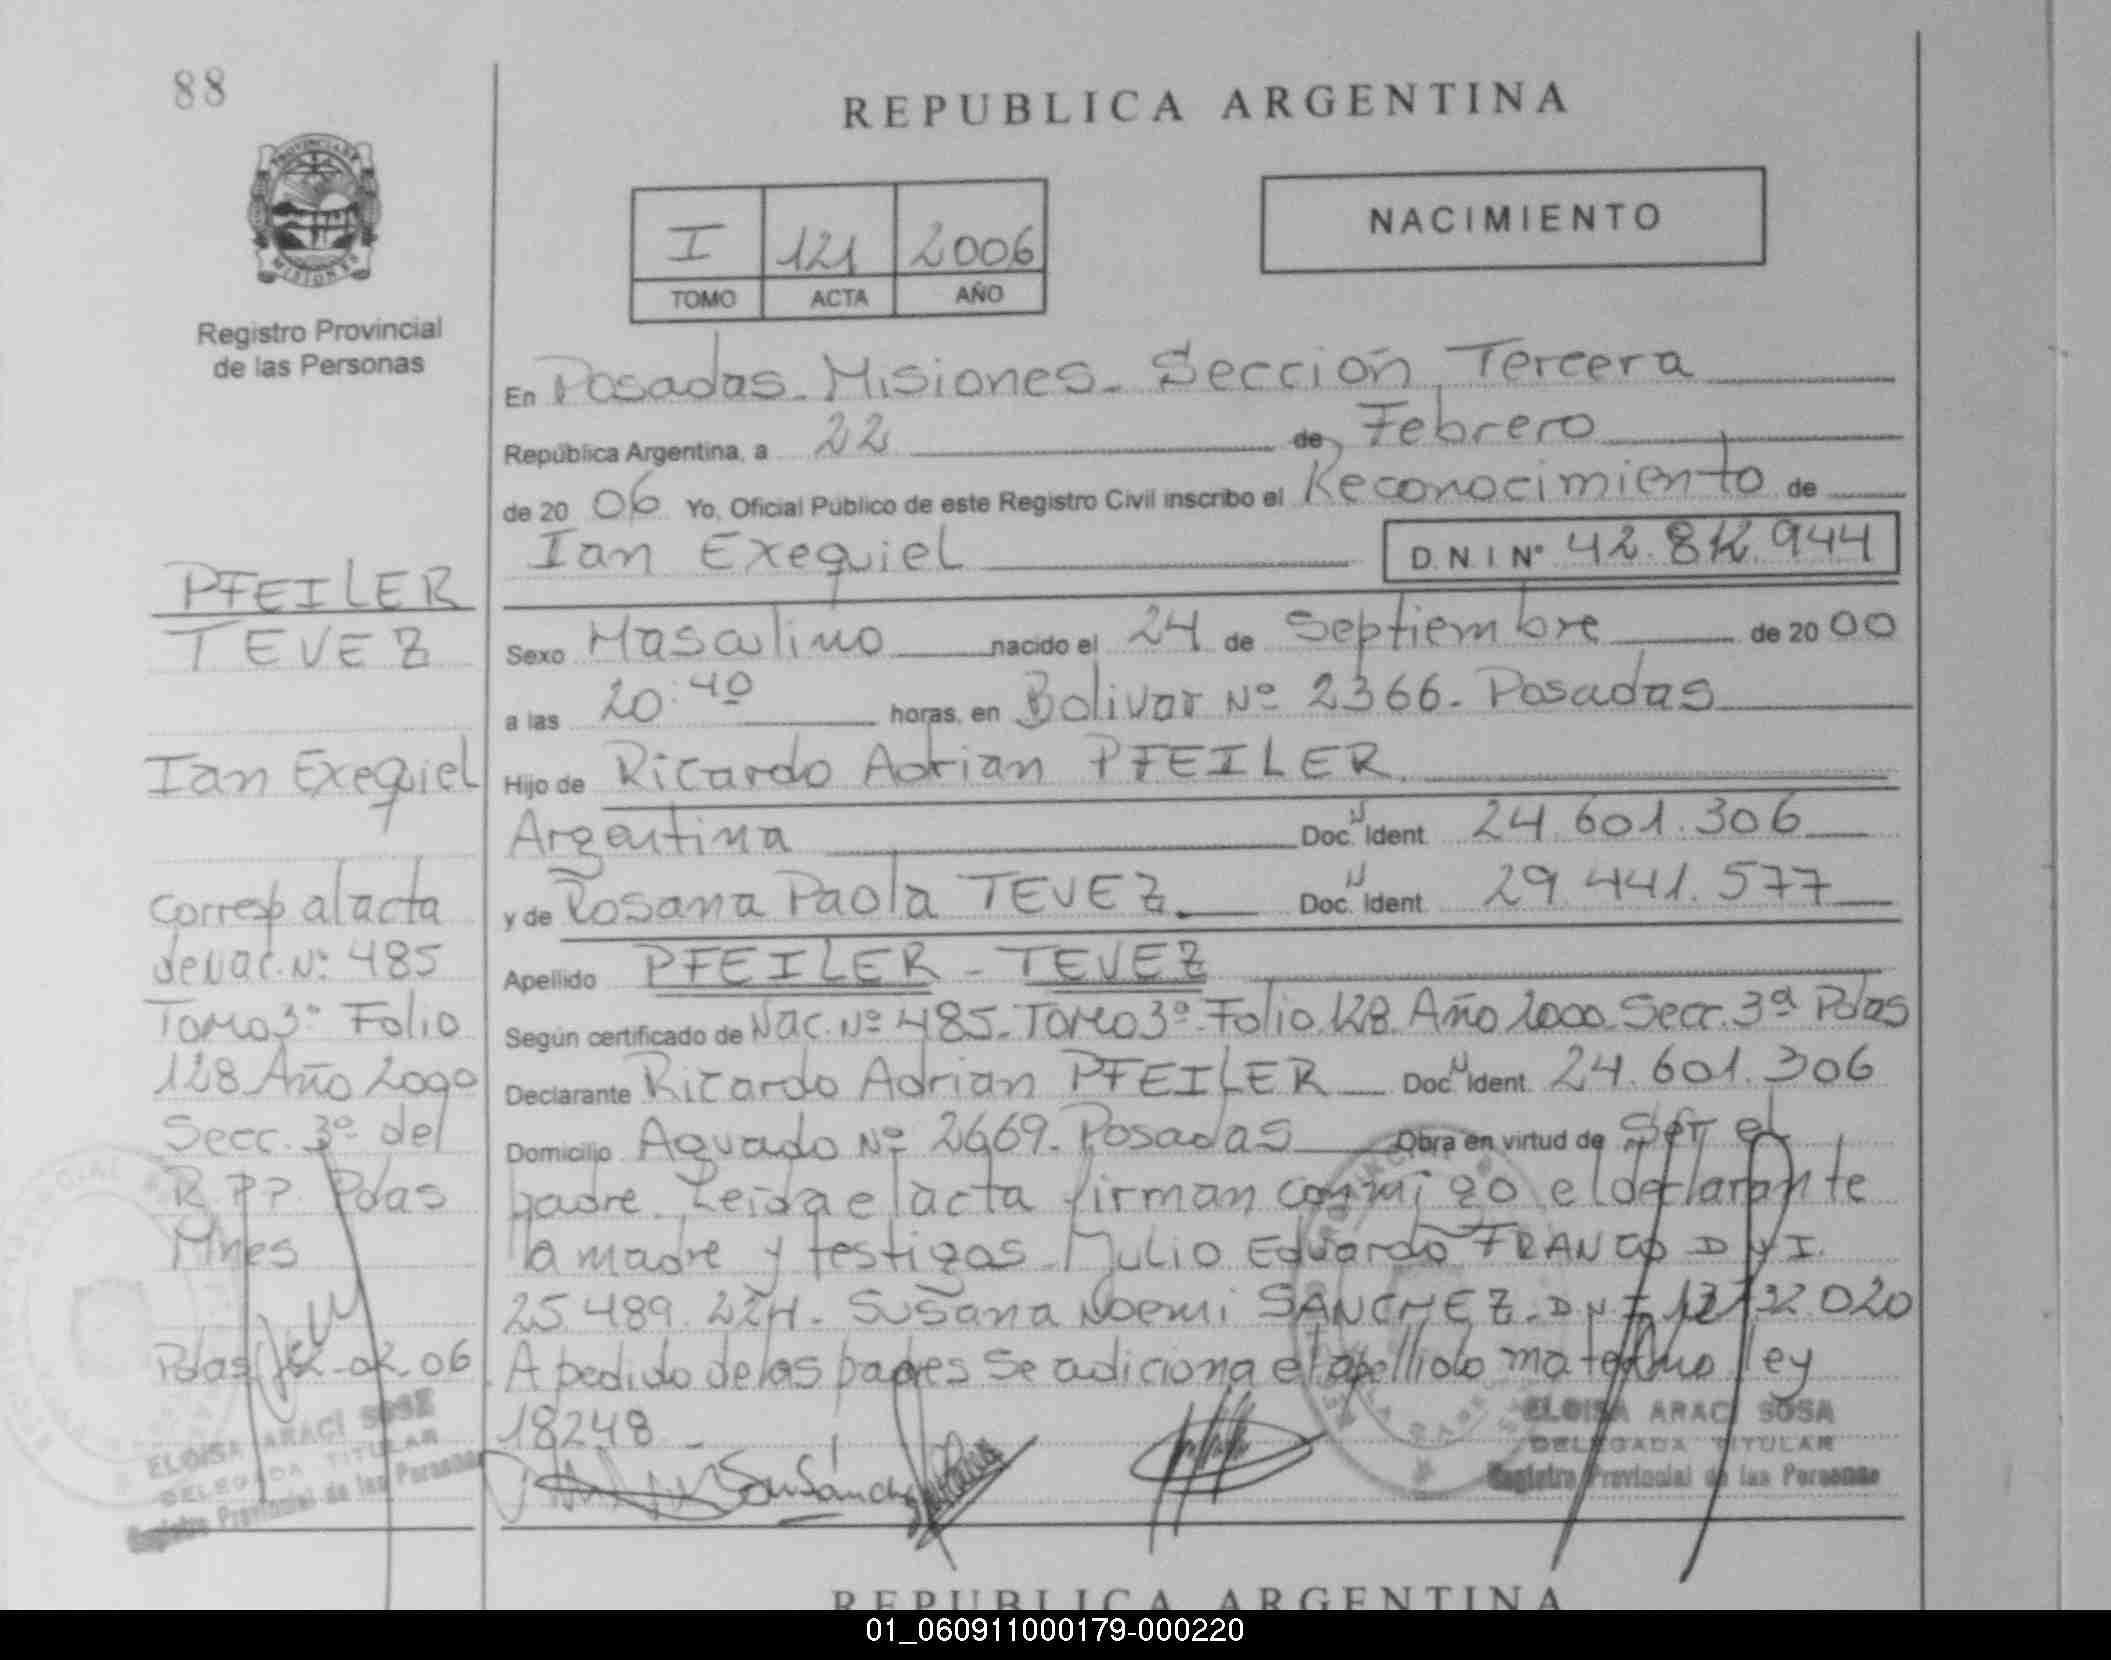 88
REPUBLICA ARGENTINA
PROVINCIA DE
MISIONES
Registro Provincial
de las Personas
I 121 2006
TOMO ACTA AÑO
NACIMIENTO
En Posadas. Misiones. Sección Tercera
República Argentina, a 22 de Febrero
de 2006 Yo, Oficial Público de este Registro Civil inscribo el Reconocimiento de
Ian Exequiel D.N.I Nº 42.812.944
Sexo Masculino nacido el 24 de Septiembre de 2000
a las 20:40 horas, en Bolivar Nº 2366. Posadas
Hijo de Ricardo Adrian PFEILER.
Argentina Doc. Ident. 24.601.306
y de Rosana Paola TEVEZ. Doc. Ident. 29.441.577
Apellido PFEILER - TEVEZ
Según certificado de Nac. Nº 485. Tomo 3º. Folio 128. Año 2000. Secc. 3ª Pdas
Declarante Ricardo Adrian PFEILER Doc. Ident. 24.601.306
Domicilio Aguado Nº 2669. Posadas Obra en virtud de Ser el
padre. Leida el acta firman conmigo el declarante
la madre y testigos. Julio Eduardo FRANCO D N I.
25.489.224. Susana Noemi SANCHEZ. D N I
A pedido de los padres se adiciona el apellido materno ley
18248.
ELOISA ARACI SOSA
DELEGADA TITULAR
Registro Provincial de las Personas
PFEILER
TEVEZ
Ian Exequiel
Corresp al acta
de nac. Nº 485
Tomo 3º Folio
128 Año 2000
Secc. 3º del
R P P. Pdas
Mnes
Pdas 22-02-06
ELOISA ARACI SOSA
DELEGADA TITULAR
Registro Provincial de las Personas
REPUBLICA ARGENTINA
01_060911000179-000220